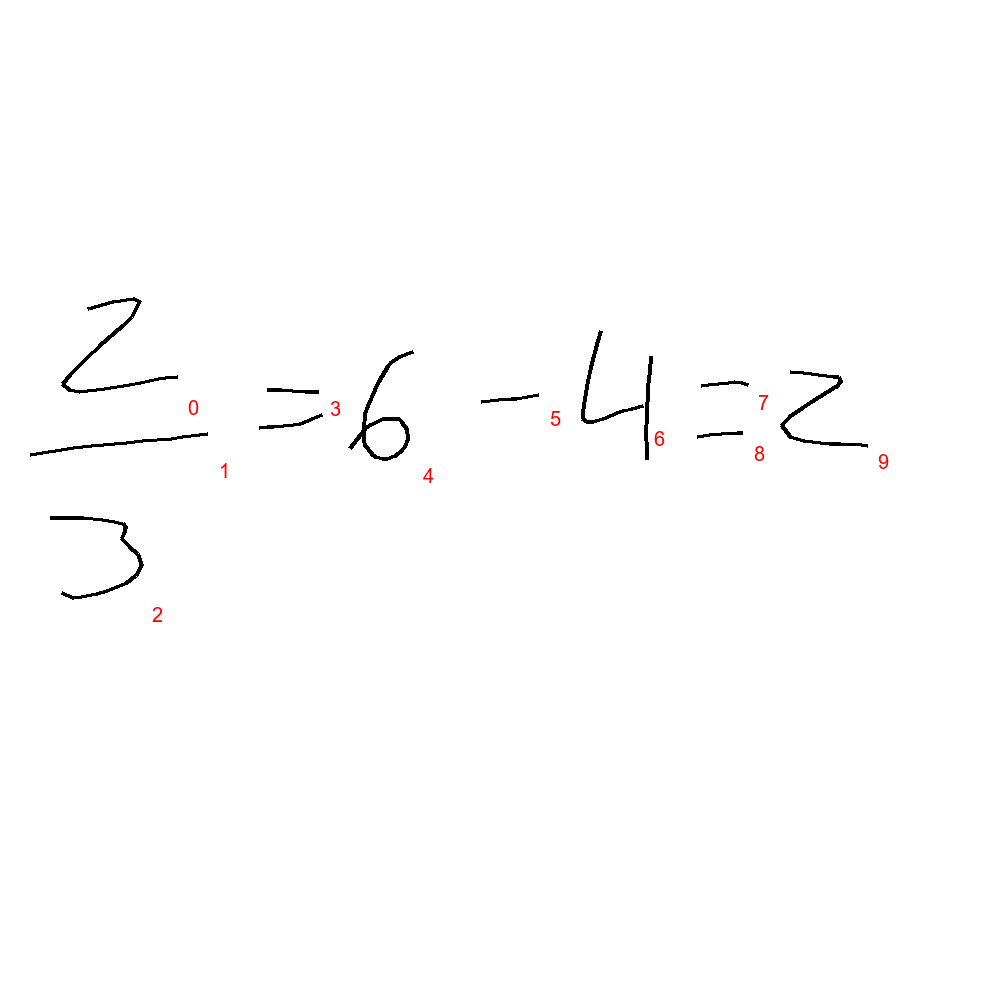 2/3 = 6 - 4 = 2
0 1 2 3 4 5 6 7 8 9